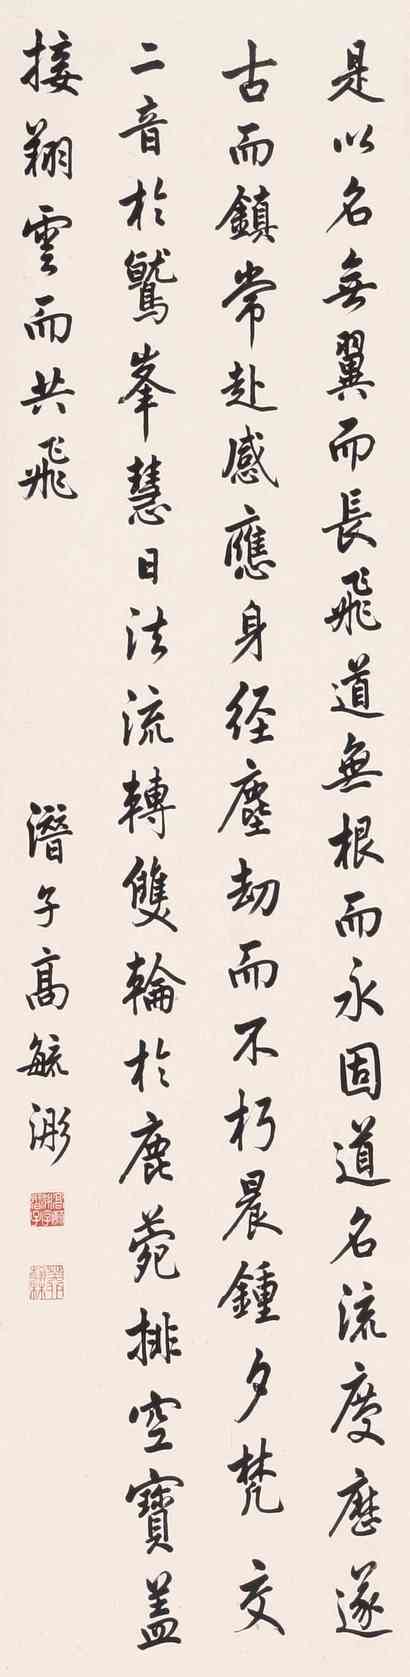 是以名無翼而長飛道無根而永固道名流慶歷遂
古而鎮常赴感應身经塵劫而不朽晨鍾夕梵交
二音於鷲峯慧日法流轉雙輪於鹿菀排空寶盖
接翔雲而共飛
潛子高毓浵